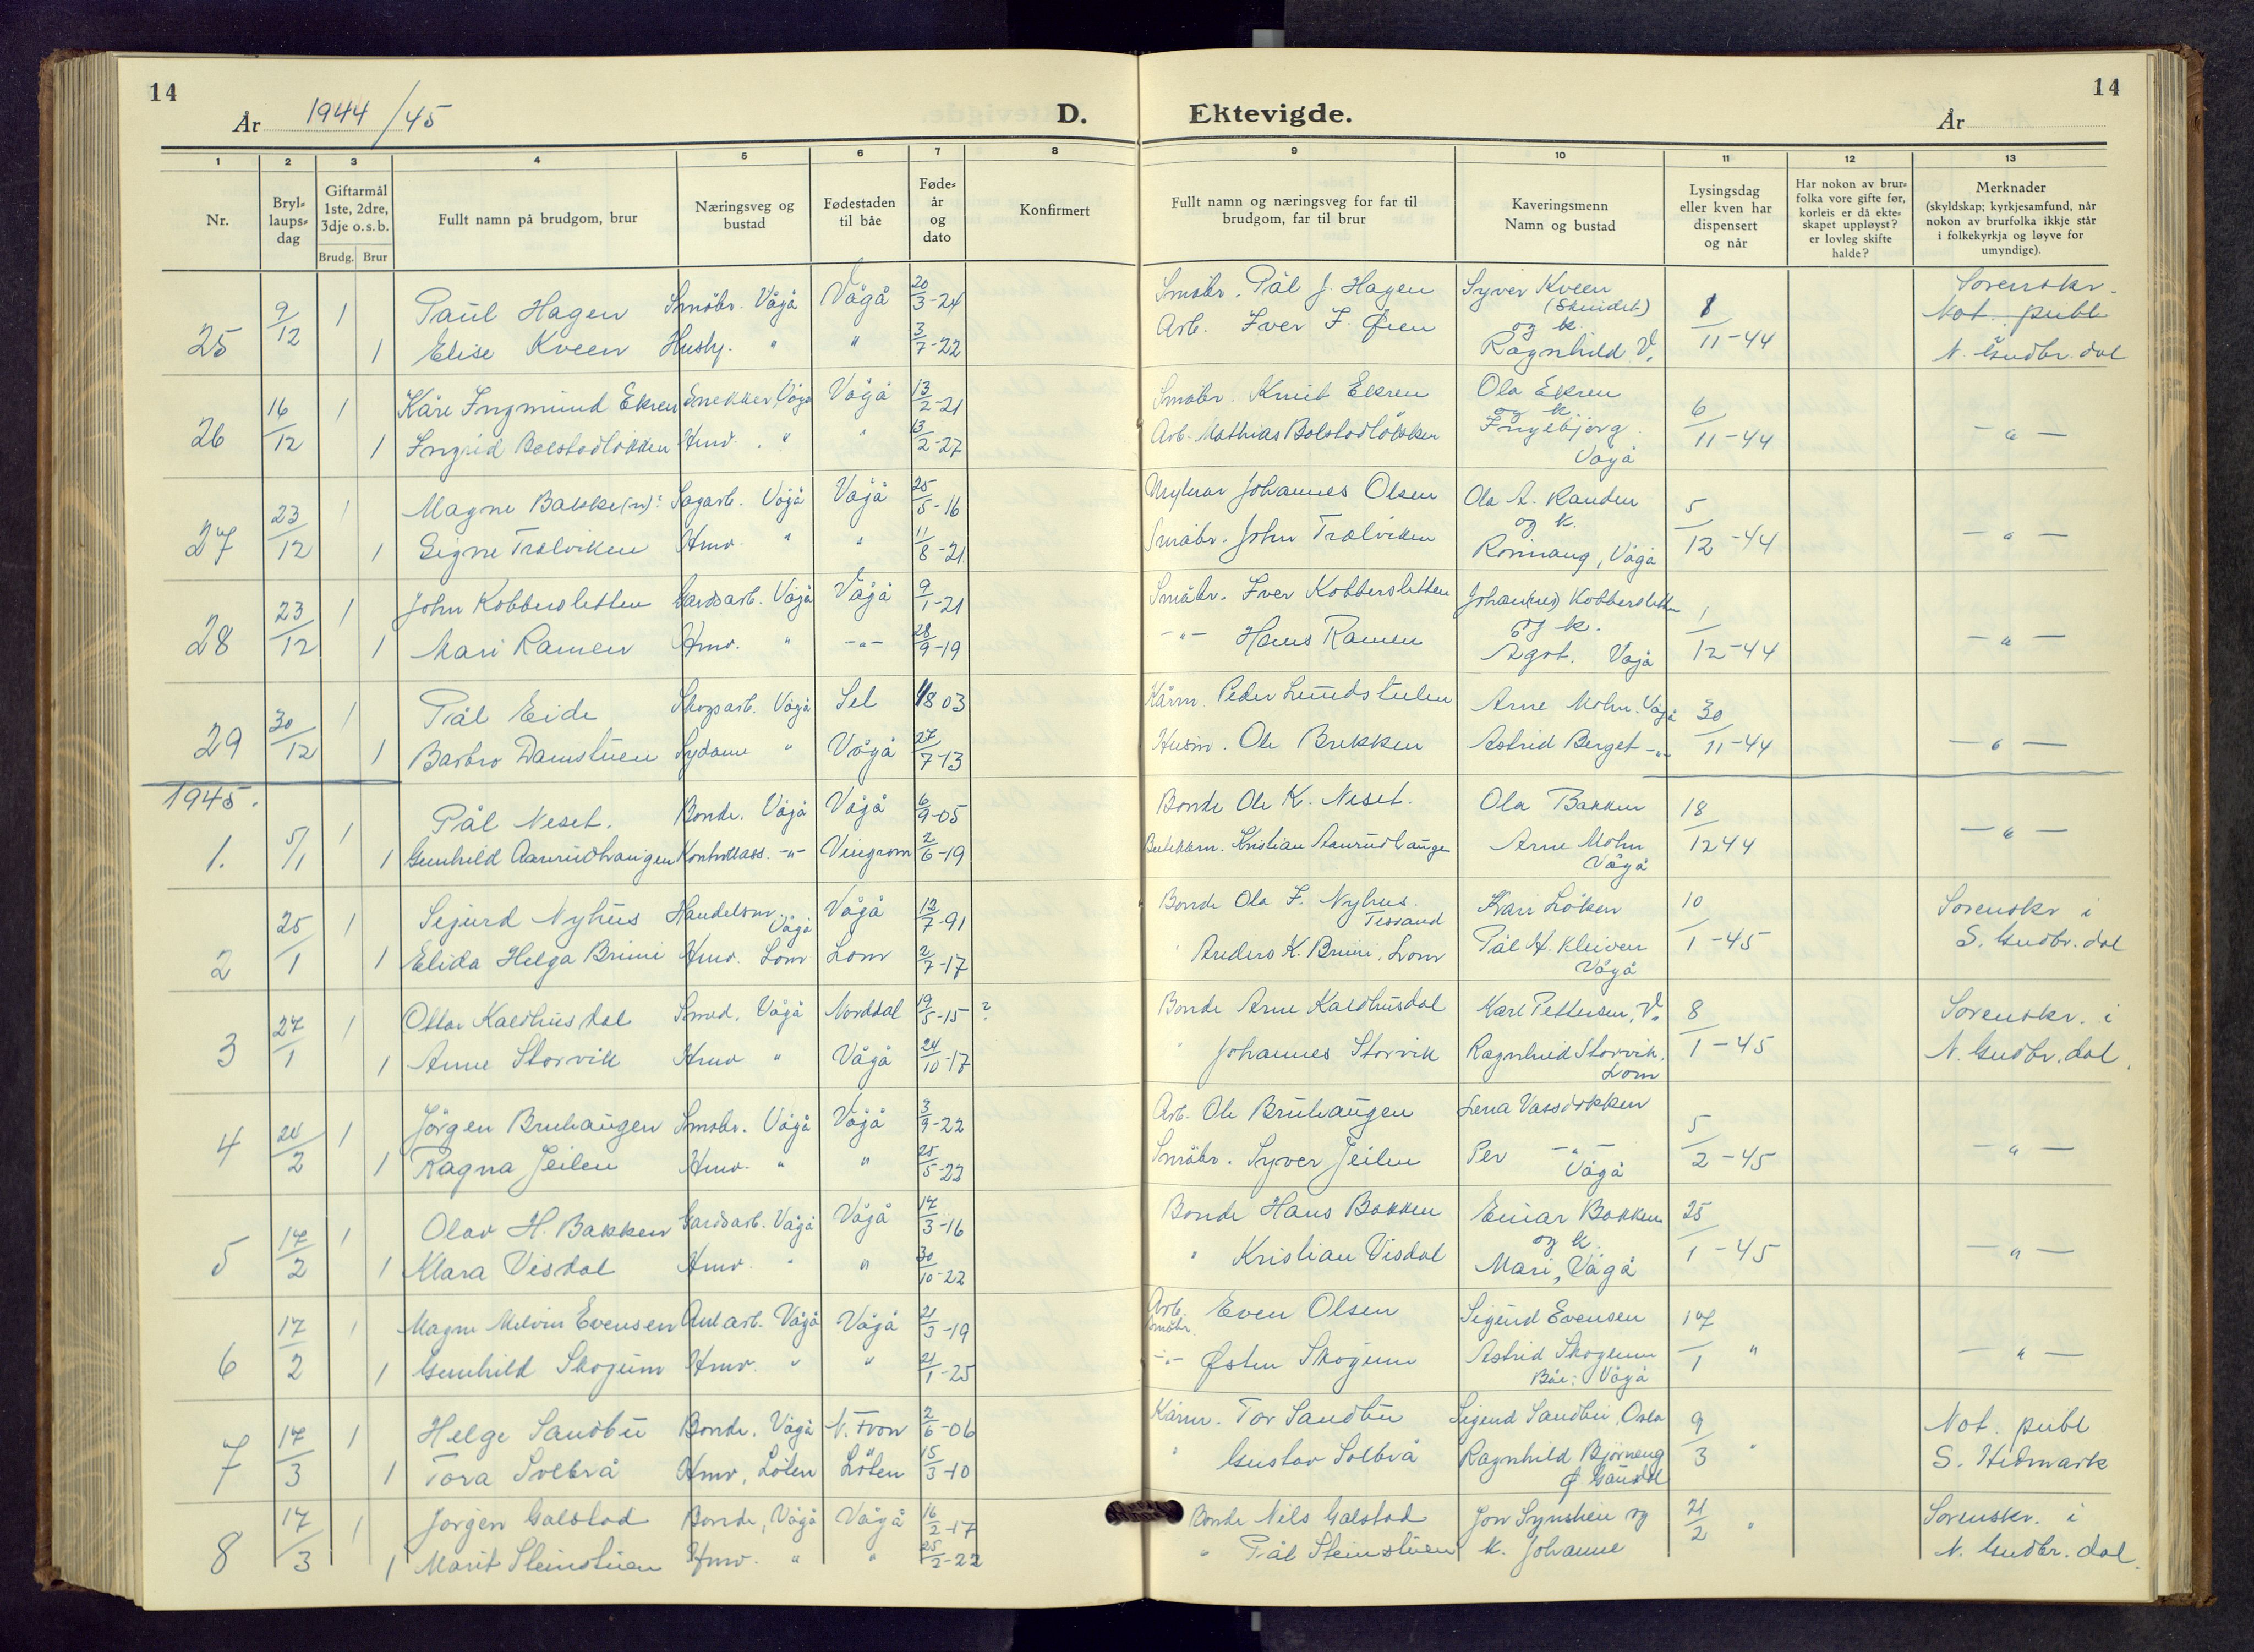 14
År 1944/45
D.
Ektevigde.
År
14
1 2 3 4 5 6 7 8 9 10 11 12 13
Nr.
Bryl-
laups-
dag
Giftarmål
1ste, 2dre,
3dje o. s. b.
Brudg. Brur
Fullt namn på brudgom, brur
Næringsveg og
bustad
Fødestaden
til båe
Føde-
år
og
dato
Konfirmert
Fullt namn og næringsveg for far til
brudgom, far til brur
Kaveringsmenn
Namn og bustad
Lysingsdag
eller kven har
dispensert
og når
Har nokon av brur-
folka vore gifte før,
korleis er då ekte-
skapet uppløyst?
er lovleg skifte
halde?
Merknader
(skyldskap; kyrkjesamfund, når
nokon av brurfolka ikkje står
i folkekyrkja og løyve for
umyndige).
25 9/12 1 Paul Hagen Småbr. Vågå Vågå 20/3-24 Småbr. Pål J. Hagen Syver Kveen (Skuidet) 1/11-44 Sorenskr.
1 Elise Kveen Hushj. " " 3/7-22 Arb. Iver I. Øien og k. Ragnhild V. Not. publ. N. Gudbr. dal
26 16/12 1 Kåre Ingmund Ekren Snekker, Vågå Vågå 13/2-21 Småbr. Knut Ekren Ola Ekren 6/11-44
1 Ingrid Bolstadløkken Hmv. " " 13/2-27 Arb. Mathias Bolstadløkken og k. Ingebjørg. Vågå - " -
27 23/12 1 Magne Bakke(n): Sagarb. Vågå Vågå 25/5-16 Johannes Olsen Ola A. Randen 5/12-44
1 Signe Trælviken Hmv. " " 11/8-21 Småbr. John Trælviken og k. Rønnaug, Vågå - " -
28 23/12 1 John Kobbersletten Gardsarb. Vågå Vågå 9/1-21 Småbr. Iver Kobbersletten Johan(nes) Kobbersletten 1/12-44
1 Mari Ramen Hmv. " -"- 28/9-19 -"- Hans Ramen og k. Agot. Vågå - " -
29 30/12 1 Pål Eide Skogsarb. Vågå Sel 4/8 03 Kårm. Peder Lundstulen Arne Mohn. Vågå 30/11-44
1 Barbro Damstuen Sydame " Vågå 27/7-13 Husm. Ole Brekken Astrid Berget -"- - " -
1945.
1. 5/1 1 Pål Neset. Bonde. Vågå Vågå 6/9-05 Bonde Ole K. Neset. Ola Bakken 18/12 44
1 Gunhild Aanrudhaugen Kontorass. -"- Vingrom 2/6-19 Kristian Aanrudhaugen Arne Mohn Vågå - " -
2 25/1 1 Sigurd Nyhus Handelsm. Vågå Vågå 12/7-91 Bonde Ola I. Nyhus. Tessand Kari Løken 10/1-45 Sorenskr i
1 Elida Helga Brimi Hmv. Lom Lom 2/7-17 " Anders K. Brimi, Lom Pål H. Kleiven Vågå S. Gudbr. dal
3 27/1 1 Ottar Kaldhusdal Smed, Vågå Norddal 19/5-15 ? Bonde Arne Kaldhusdal Karl Pettersen, V. 8/1-45 Sorenskr. i
1 Anne Storvik Hmv " Vågå 24/10-17 " Johannes Storvik Ragnhild Storvik. Lom N. Gudbr. dal.
4 24/2 1 Jörgen Bruhaugen Småbr. Vågå Vågå 3/9-22 Arb. Ole Bruhaugen Lena Vassdokken 5/2-45
1 Ragna Jeilen Hmv. " " 25/5-22 Småbr. Syver Jeilen Per -"- Vågå - " -
5 17/2 1 Olav H. Bakken Gardsarb. Vågå Vågå 17/3-16 Bonde Hans Bakken Einar Bakken 25/1-45
1 Klara Visdal Hmv. " " 30/10-22 " Kristian Visdal og k. Mari, Vågå - " -
6 17/2 1 Magne Melvin Evensen Anl.arb. Vågå Vågå 21/3-19 Arb. Småbr. Even Olsen Sigurd Evensen 17/1 "
1 Gunhild Skogum Hmv. " " 21/1-25 -"- Østen Skogum Astrid Skogum Båe: Vågå - " -
7 17/3 1 Helge Sandbu Bonde, Vågå N. Fron 2/6-06 Kårm. Tor Sandbu Sigurd Sandbu, Oslo 9/3 " Not. publ
1 Tora Solbrå Hmv, Löten Löten 15/3-10 " Gustav Solbrå Ragnhild Bjørneng Ø Gausdal S. Hedmark
8 17/3 1 Jörgen Galstad Bonde, Vågå Vågå 16/2-17 Bonde Nils Galstad Jon Synstlien og 21/2 " Sorenskr. i
1 Marit Steinstuen Hmv. " " 25/2-22 " Pål Steinstuen k. Johanne N. Gudbr. dal.